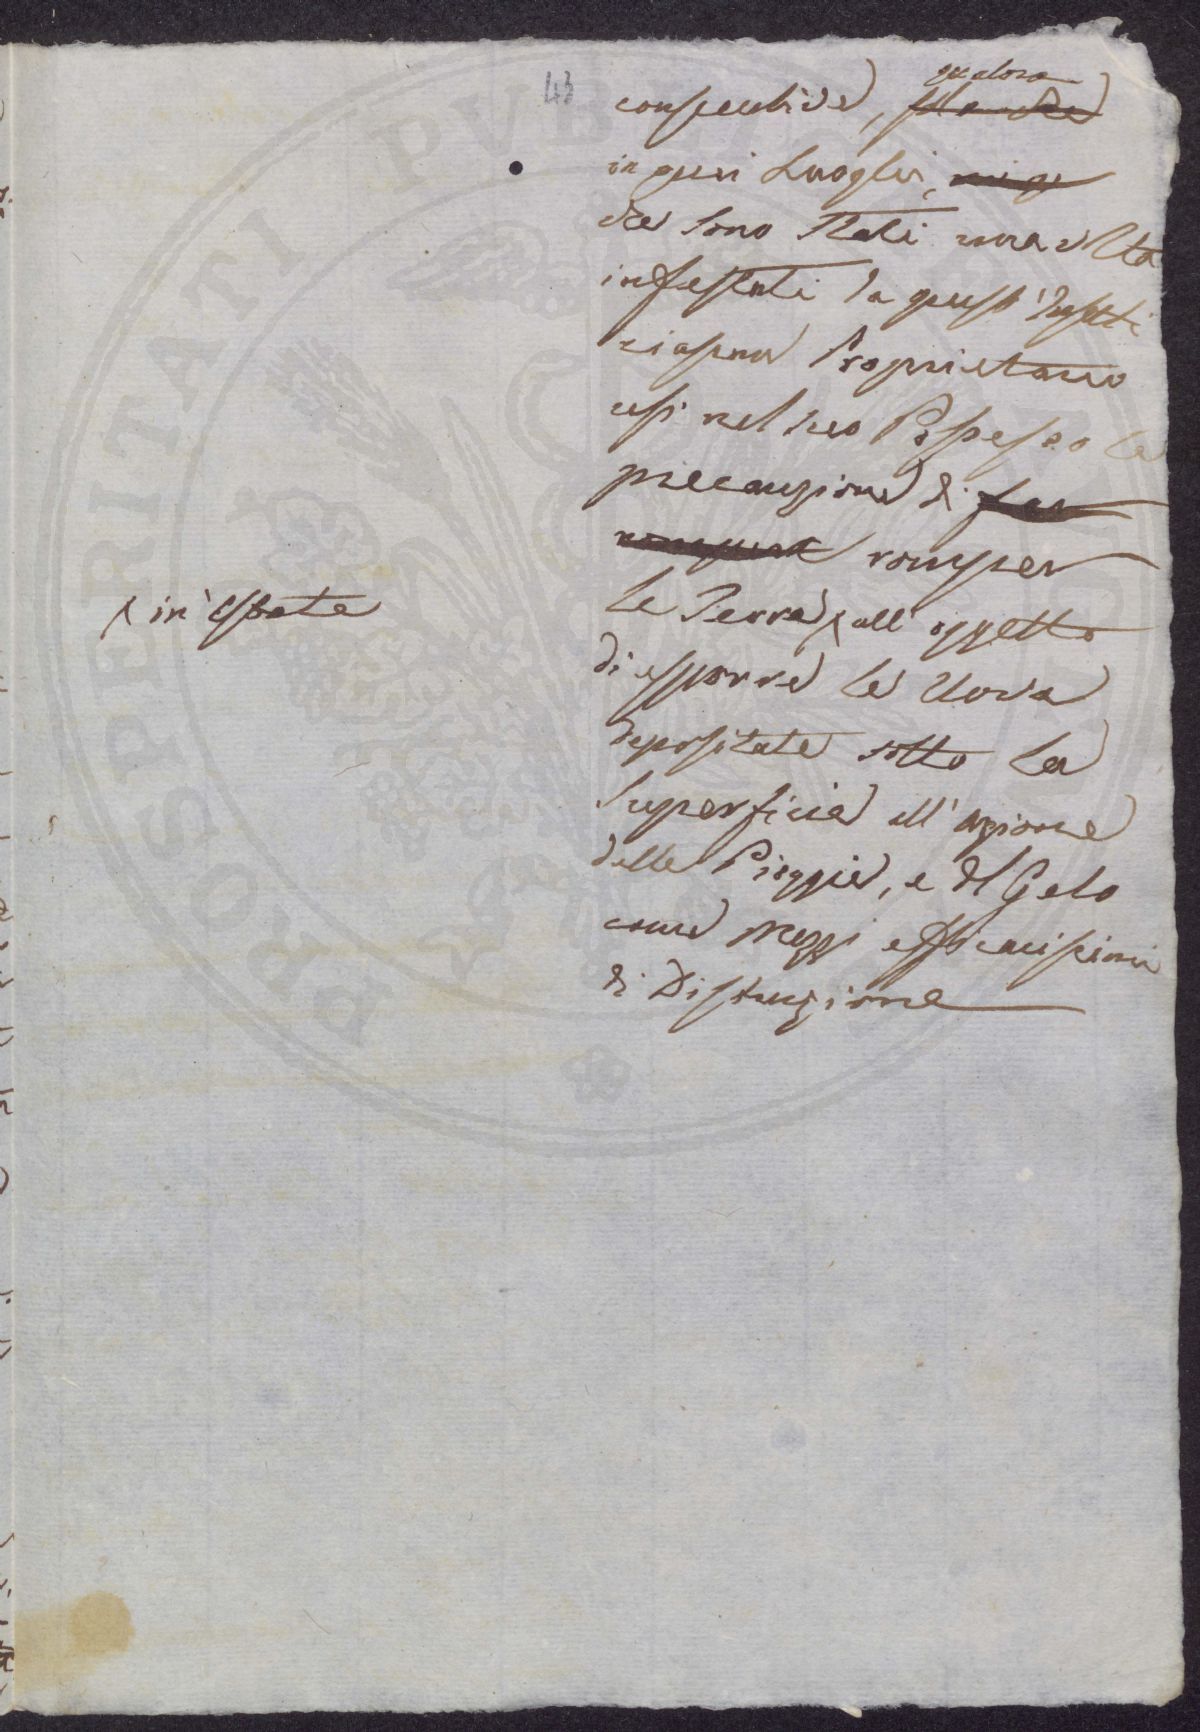 43
qualora
consecutive,
in quei Luoghi,
che sono Stati una volta
infestati da questi Insetti
ciascun Proprietario
usi nel suo Possesso la
precauzione di far
rompere romper
le Terre all'oggetto
in'Estate
di esporre le Uova
depositate sotto la
Superficie all'azione
delle Pioggie, e del Gelo
come mezzi efficacissimi
di Distruzione
PROSPERITATI PVBLICAE